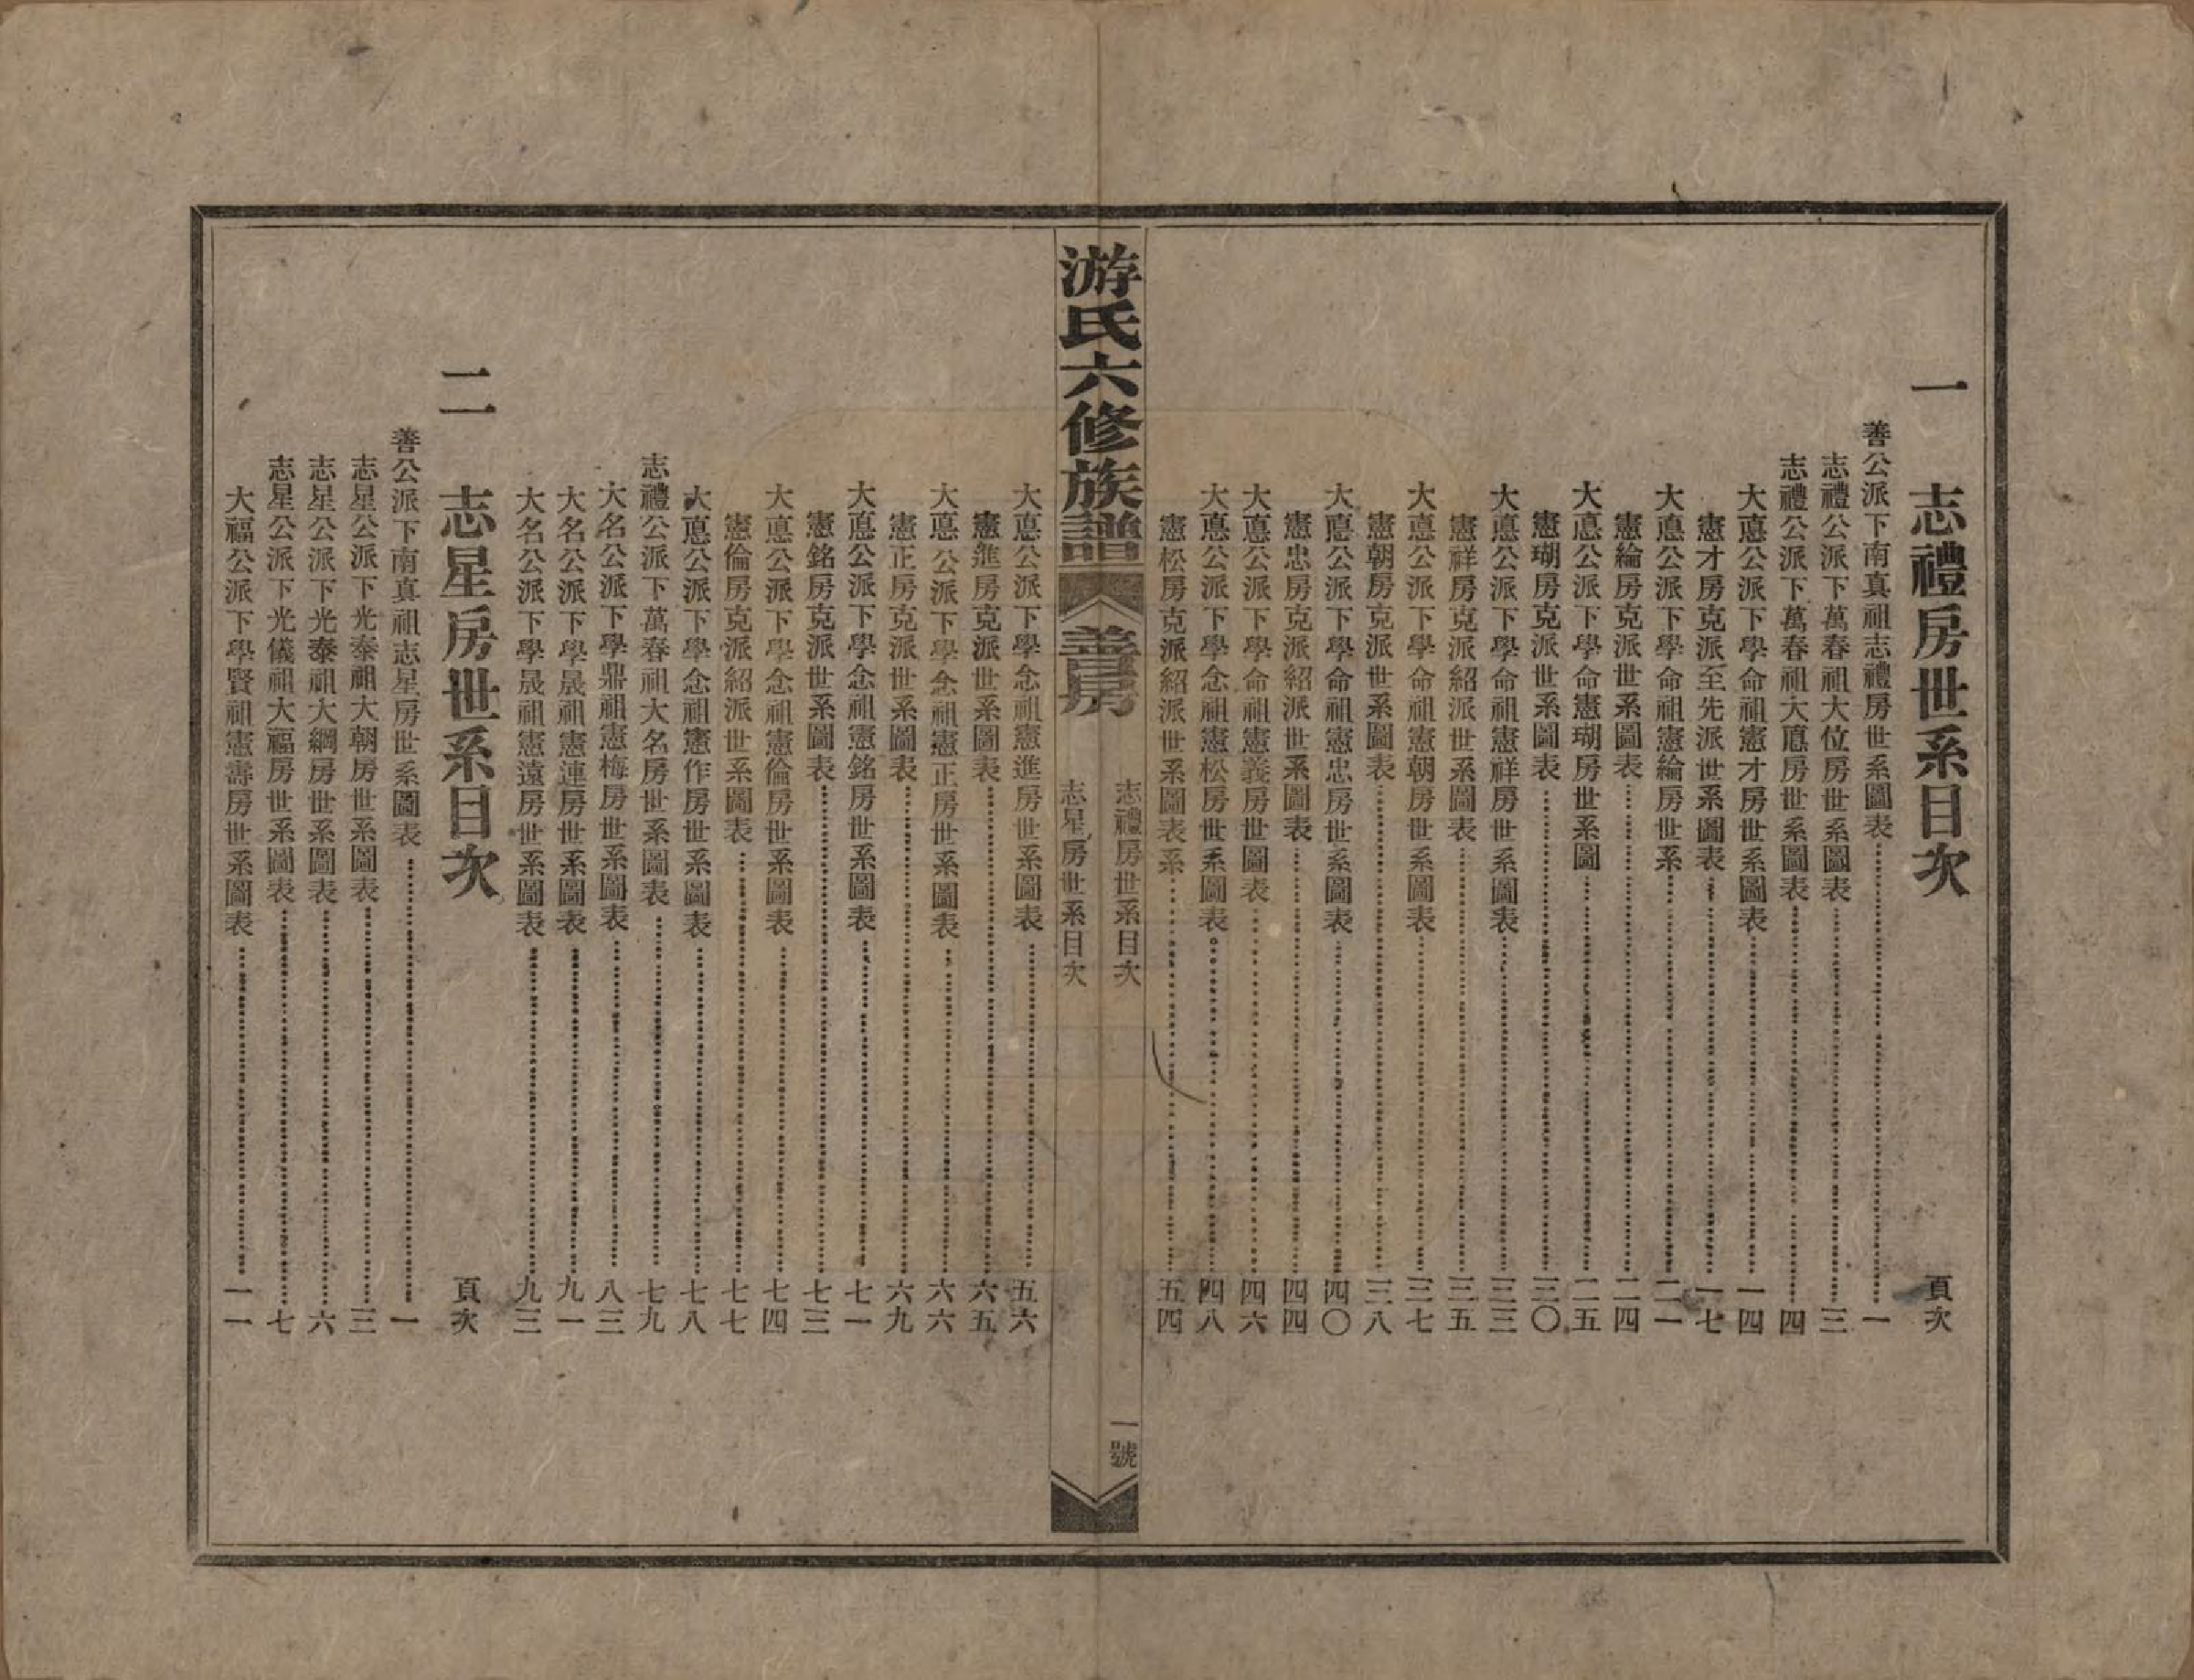 一　志禮房世系目次　頁次
善公派下南真祖志禮房世系圖表……一
志禮公派下萬春祖大位房世系圖表……三
志禮公派下萬春祖大悳房世系圖表……四
大悳公派下學命祖憲才房世系圖表……一四
憲才房克派至先派世系圖表……一七
大悳公派下學命祖憲綸房世系……二一
憲綸房克派世系圖表……二四
大悳公派下學命憲瑚房世系圖……二五
憲瑚房克派世系圖表……三〇
大悳公派下學命祖憲祥房世系圖表……三三
憲祥房克派紹派世系圖表……三五
大悳公派下學命祖憲朝房世系圖表……三七
憲朝房克派世系圖表……三八
大悳公派下學命祖憲忠房世系圖表……四〇
憲忠房克派紹派世系圖表……四四
大悳公派下學命祖憲義房世圖表……四六
大悳公派下學念祖憲松房世系圖表……四八
憲松房克派紹派世系圖表系……五四
游氏六修族譜
善房
志禮房世系目次
志星房世系目次
一號
大悳公派下學念祖憲進房世系圖表……五六
憲進房克派世系圖表……六五
大悳公派下學念祖憲正房世系圖表……六六
憲正房克派世系圖表……六九
大悳公派下學念祖憲銘房世系圖表……七一
憲銘房克派世系圖表……七三
大悳公派下學念祖憲倫房世系圖表……七四
憲倫房克派紹派世系圖表……七七
大悳公派下學念祖憲作房世系圖表……七八
志禮公派下萬春祖大名房世系圖表……七九
大名公派下學鼎祖憲梅房世系圖表……八三
大名公派下學晟祖憲連房世系圖表……九一
大名公派下學晟祖憲遠房世系圖表……九三
二　志星房世系目次　頁次
善公派下南真祖志星房世系圖表……一
志星公派下光泰祖大朝房世系圖表……三
志星公派下光泰祖大綱房世系圖表……六
志星公派下光儀祖大福房世系圖表……七
大福公派下學賢祖憲壽房世系圖表……一一